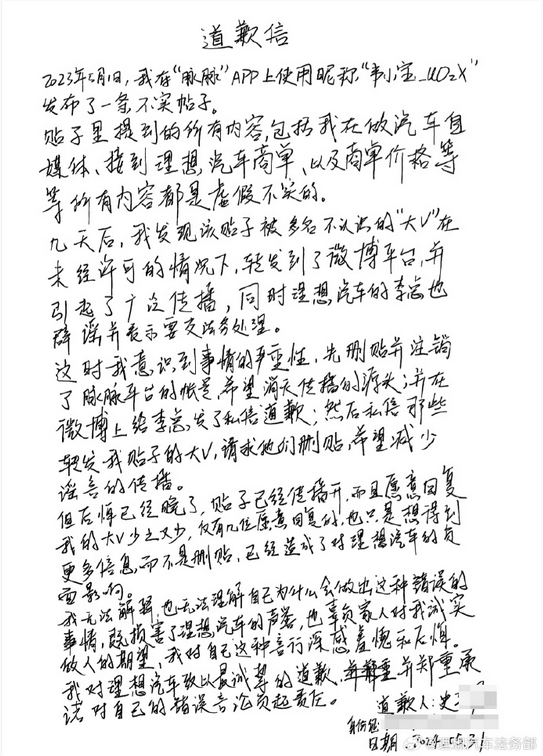 道歉信
2023年5月1日，我在“脉脉”APP上使用昵称“韦小宝_UO2X”
发布了一条不实帖子。
贴子里提到的所有内容，包括我在做汽车自
媒体、接到理想汽车商单、以及商单价格等
等所有内容都是虚假不实的。
九天后，我发现该贴子被多名不认识的“大V”在
未经许可的情况下，转发到了微博平台，并
引起了广泛传播，同时理想汽车的李总也
辟谣并表示要交法务处理。
这时我意识到事情的严重性，先删贴并注销
了脉脉平台的帐号，希望消灭传播的源头；并在
微博上给李总发了私信道歉；然后私信那些
转发我贴子的大V，请求他们删贴，希望减少
谣言的传播。
但后悔已经晚了，贴子已经传播开，而且愿意回复
我的大V少之又少，仅有几位愿意回复的，也只是想得到
更多信息，而不是删贴，已经造成了对理想汽车的负
面影响。
我无法解释，也无法理解自己为什么会做出这种错误的
事情，既损害了理想汽车的声誉，也辜负家人对我诚实
做人的期望，我对自己这种言行深感羞愧和后悔。
我对理想汽车致以最诚挚的道歉，并郑重承
诺对自己的错误言论负起责任。
道歉人：史
身份证
日期